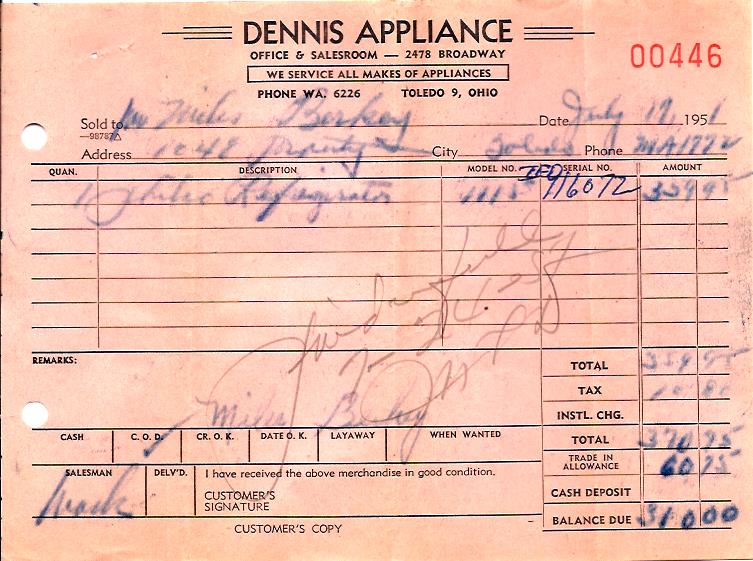 DENNIS APPLIANCE
OFFICE & SALESROOM — 2478 BROADWAY
00446
WE SERVICE ALL MAKES OF APPLIANCES
PHONE WA. 6226 TOLEDO 9, OHIO
Sold to Miles Berkey Date July 17 1951
—98787
Address 1048 City Toledo Phone MA1772
QUAN. DESCRIPTION MODEL NO. SERIAL NO. AMOUNT
1 Philco Refrigerator 1115 716072 359 95
Paid in full
7-24-51
REMARKS: TOTAL 359 95
TAX 10 80
INSTL. CHG.
Miles Berkey
CASH C. O. D. ✓ CR. O. K. DATE O. K. LAYAWAY WHEN WANTED TOTAL 370 75
SALESMAN DELV'D. I have received the above merchandise in good condition. TRADE IN ALLOWANCE 60 75
CUSTOMER'S SIGNATURE CASH DEPOSIT
BALANCE DUE 310 00
CUSTOMER'S COPY